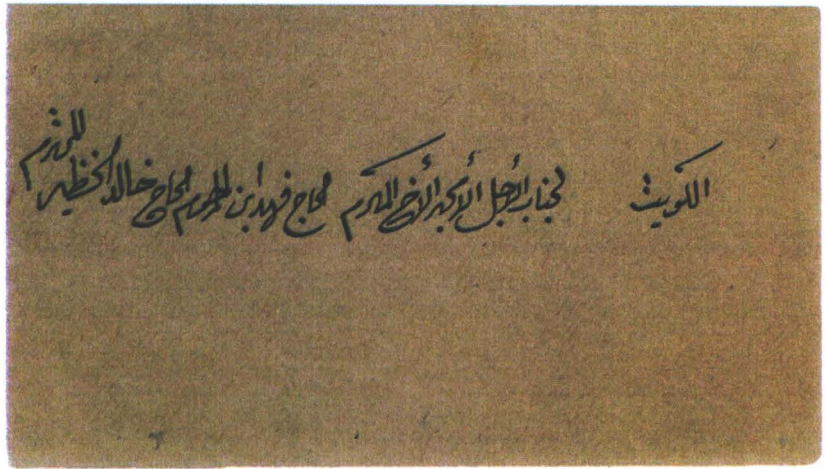 الكويت لجناب الأجل الأمجد الأخ المكرم الحاج فهد ابن المرحوم الحاج خالد الخضير المحترم